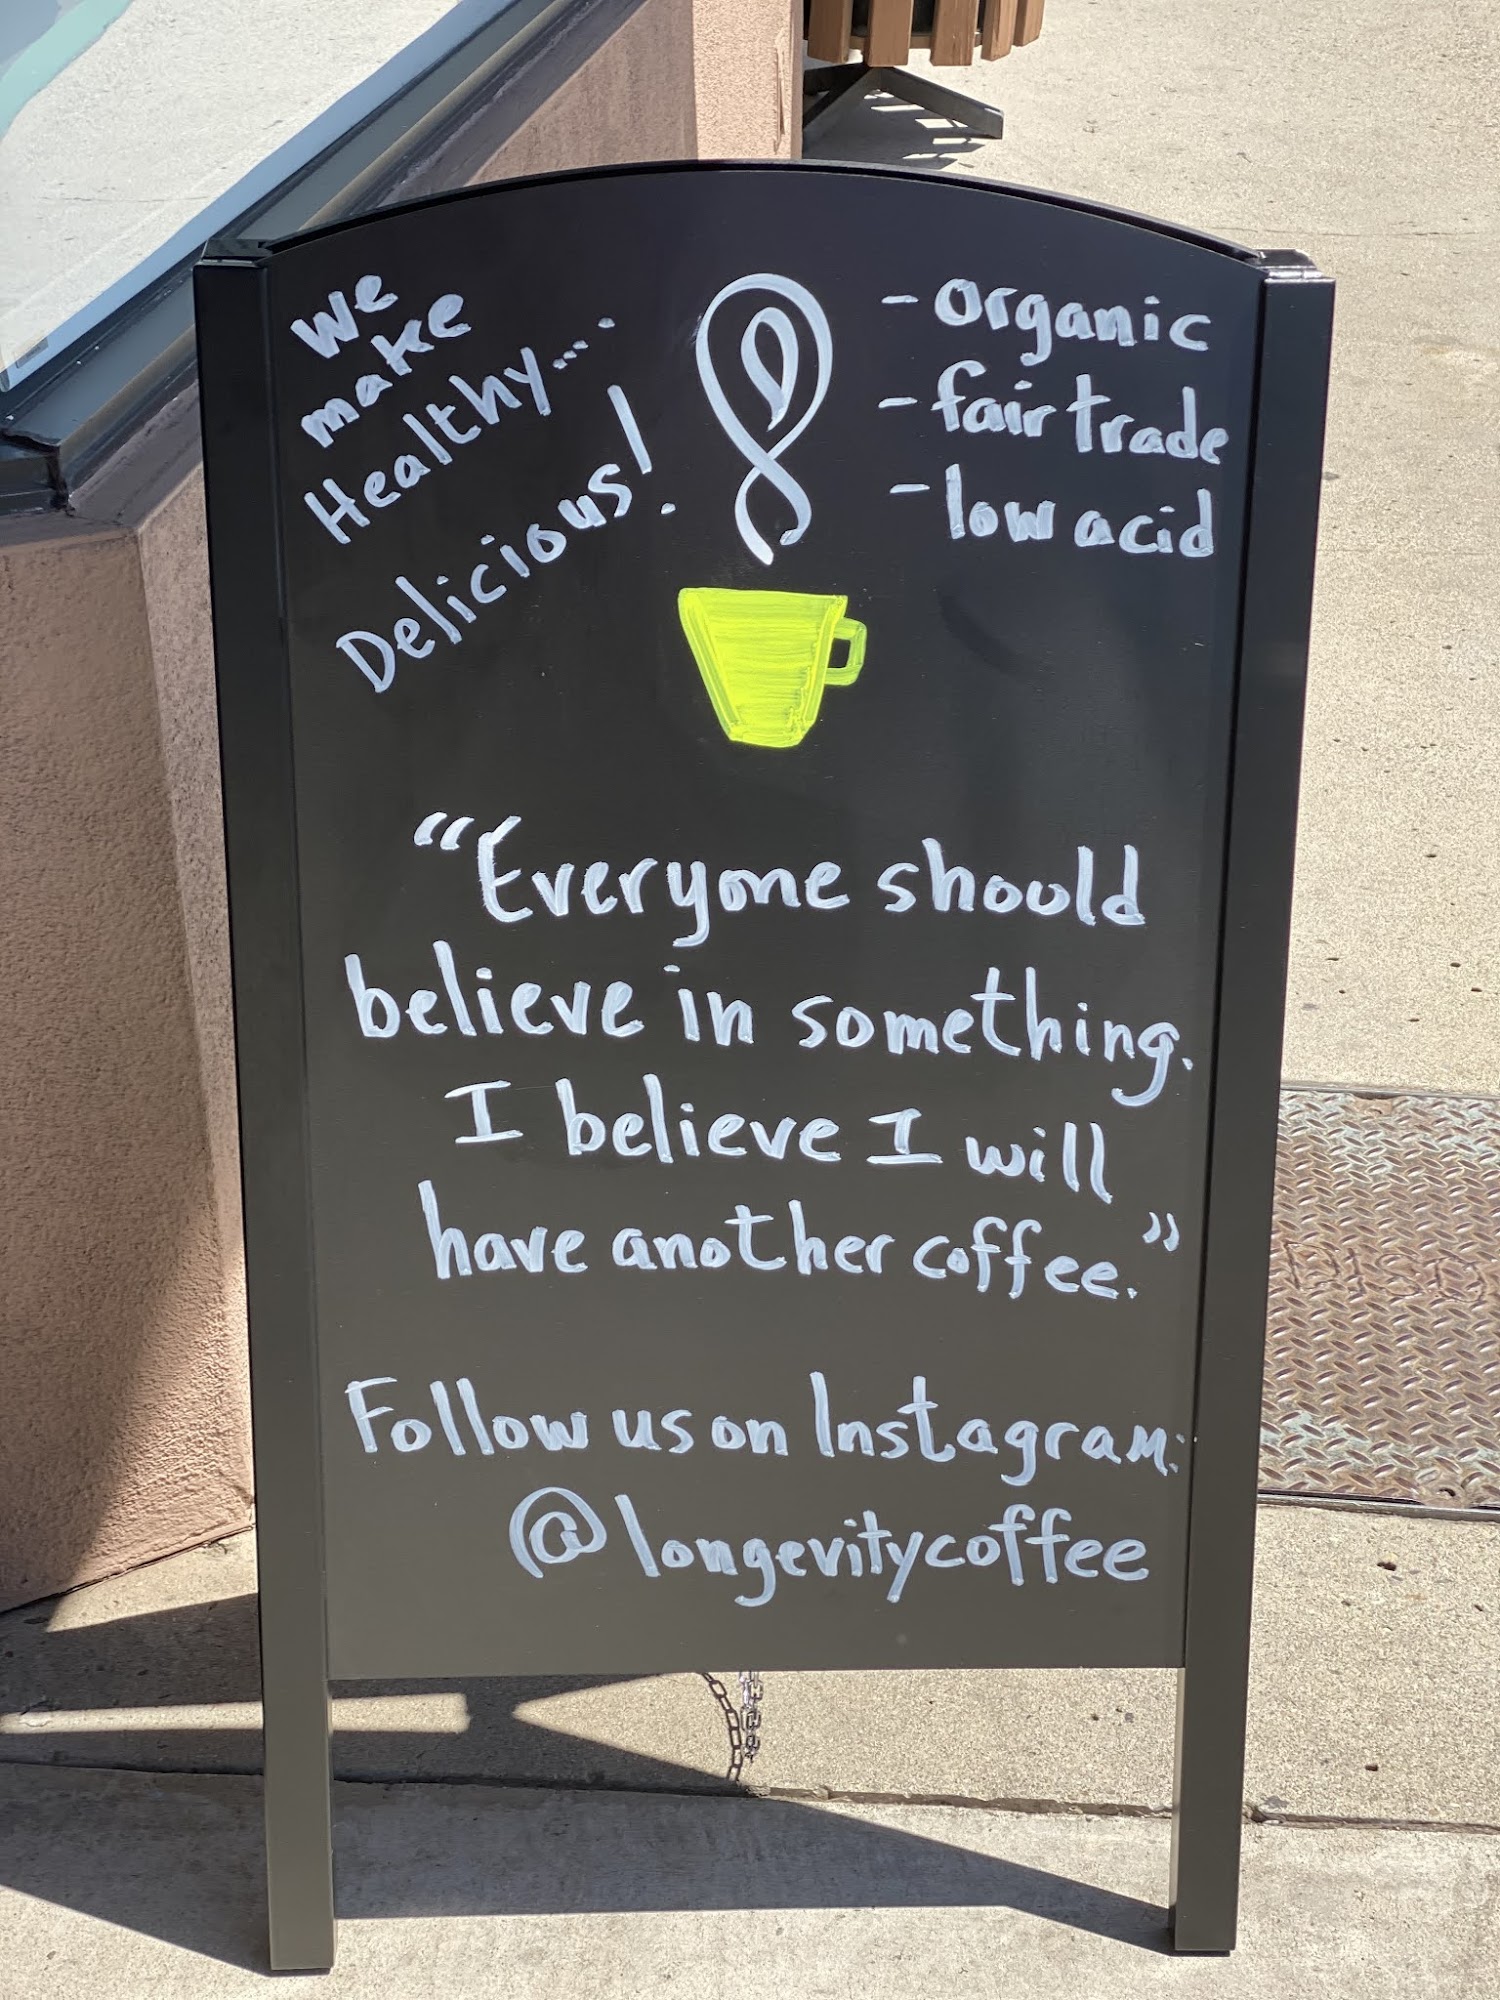 We
make
Healthy....
Delicious!
- organic
- fair trade
- low acid
"Everyone should
believe in something.
I believe I will
have another coffee."
Follow us on Instagram:
@longevitycoffee